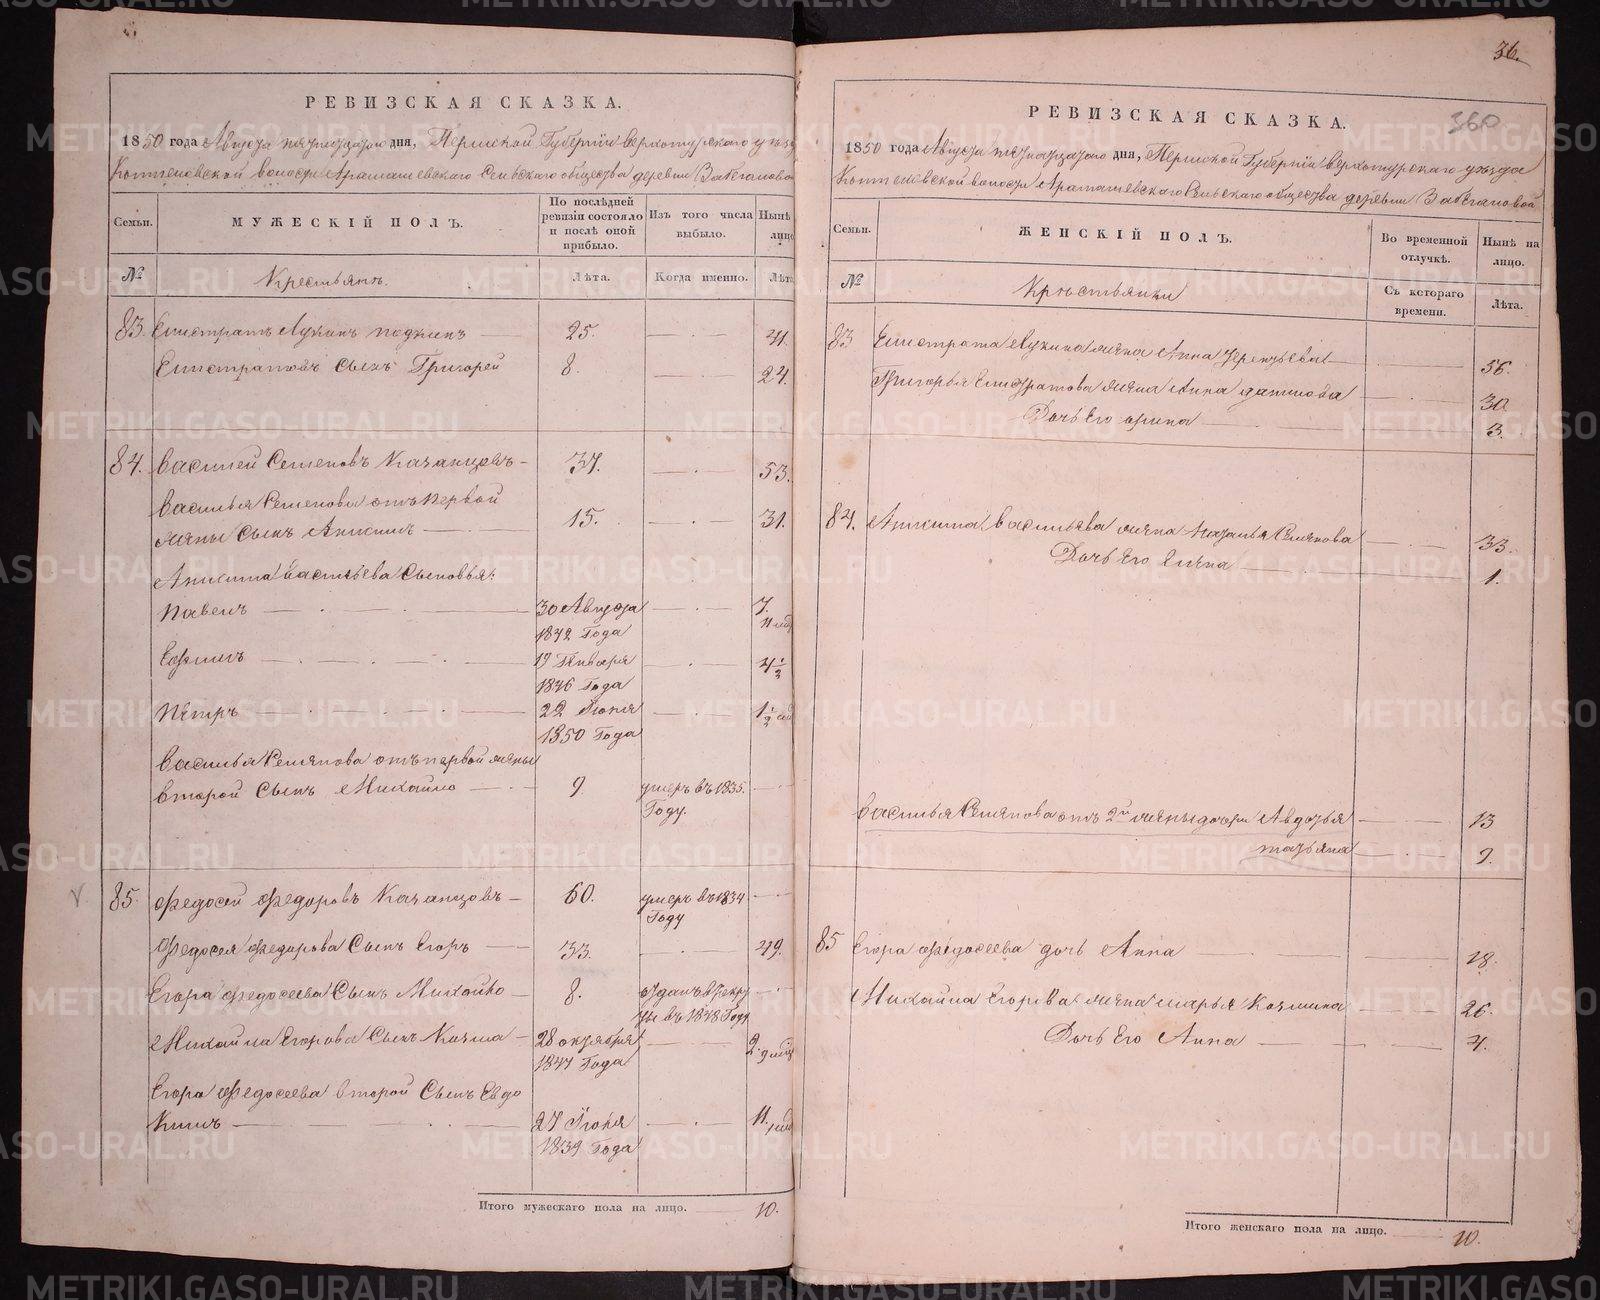 РЕВИЗСКАЯ СКАЗКА.
1850 года Августа пятнадцатого дня, Пермской Губернии Верхотурского уезда
Коптеловской волости Арамашевского Сельского общества деревни
Семьи. МУЖЕСКІЙ ПОЛЪ. По послѣдней ревизіи состояло и послѣ оной прибыло. Изъ того числа выбыло. Нынѣ лицо
№ Крестьянъ. Лѣта. Когда именно. Лѣта
83. Елистратъ Лукинъ 25. 41.
Елистратовъ сынъ Григорей 8. 24.
84. Василей Семеновъ Казанцовъ 37. 53.
Василья Семенова отъ первой
жены сынъ Аникинъ 15. 31.
Аникина Васильева сыновья:
Павелъ 30 Августа 7.
1842 Года
Ефимъ 19 Генваря 4 1/2
1846 Года
Пётръ 22 Іюня 1 1/2
1850 Года
Василья Семенова отъ первой жены
второй сынъ Михайло 9. умеръ въ 1835.
Году.
85. Федосей Федоровъ Казанцовъ 60. умеръ въ 1834
Году
Федосея Федорова сынъ Егоръ 33. 49.
Егора Федосеева сынъ Михайло 8. отданъ в рекру
ты въ 1848 Году
Михайла Егорова сынъ Козма 28 октября 2.
1847 Года
Егора Федосеева второй сынъ Евдо
кимъ 27 Іюня 11.
1839 Года
Итого мужескаго пола на лицо. 10.
36.
360
РЕВИЗСКАЯ СКАЗКА.
1850 года Августа пятнадцатого дня, Пермской Губерніи Верхотурскаго уезда
Коптеловской волости Арамашевскаго Сельскаго общества деревни
Семьи. ЖЕНСКІЙ ПОЛЪ. Во временной отлучкѣ. Нынѣ на лицо.
№ Крестьянки Съ котораго времени. Лѣта.
83 Елистрата Лукина жена Анна Терентьева 56.
Григорья Елистратова жена Анна Данилова 30
Дочь его Арина 3.
84. Аникина Васильева жена Наталья Семенова 33.
Дочь его Елена 1.
Василья Семенова отъ 2й жены дочери Авдотья 13
Татьяна 9.
85 Егора Федосеева дочь Анна 18.
Михайла Егорова жена Марья Козмина 26.
Дочь его Анна 4.
Итого женскаго пола на лицо. 10.
METRIKI.GASO-URAL.RU